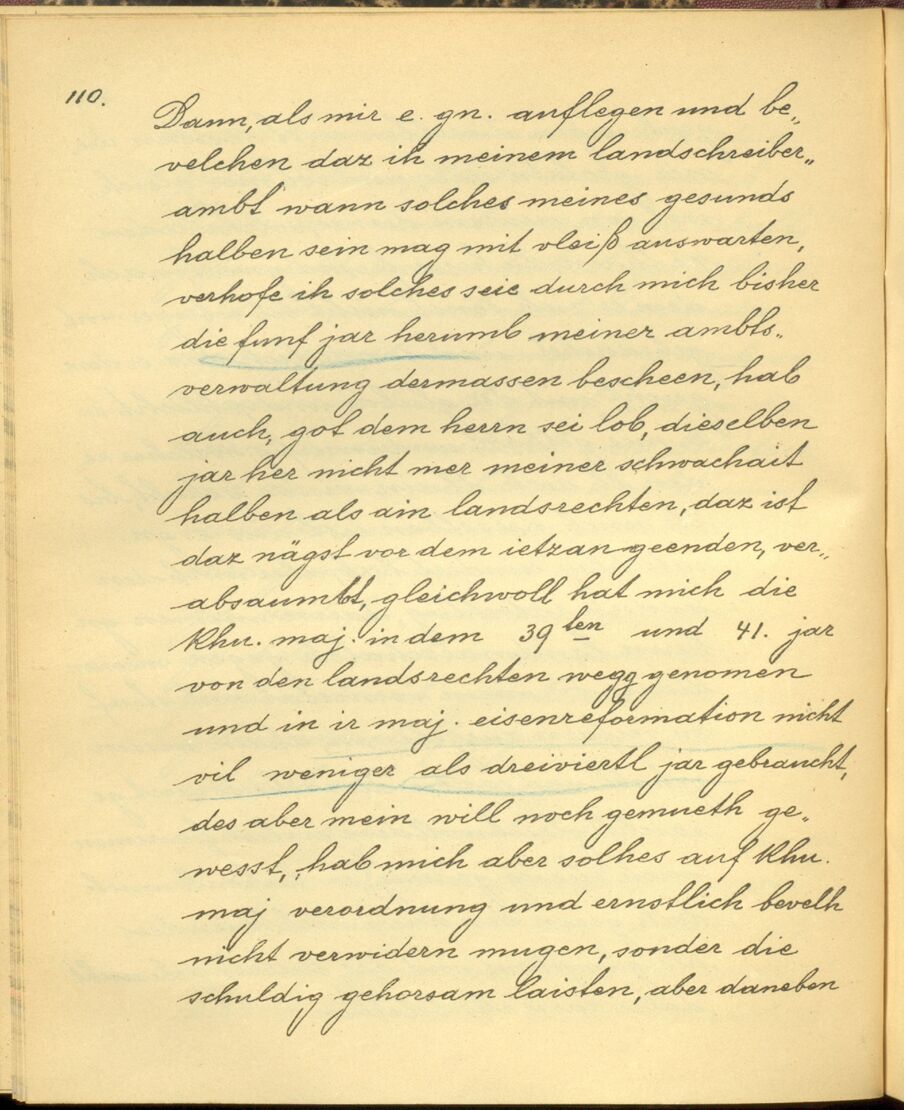 110.
Dann, als mir e. gn. auflegen und be„
velchen daz ih meinem landschreiber„
ambt wann solches meines gesunds
halben sein mag mit vleiß auswarten,
verhofe ih solches seie durch mich bisher
die funf jar herumb meiner ambts„
verwaltung dermassen bescheen, hab
auch, got dem herrn sei lob, dieselben
jar her nicht mer meiner schwachait
halben als ain landsrechten, daz ist
daz nägst vor dem ietzan geenden, ver„
absaumbt, gleichwoll hat mich die
khu. maj. in dem 39ten und 41. jar
von den landsrechten wegg genomen
und in ir maj. eisenreformation nicht
vil weniger als dreiviertl jar gebraucht,
des aber mein will noch gemueth ge„
wesst, hab mich aber solhes auf khu.
maj verordnung und ernstlich bevelh
nicht verwidern mugen, sonder die
schuldig gehorsam laisten, aber daneben